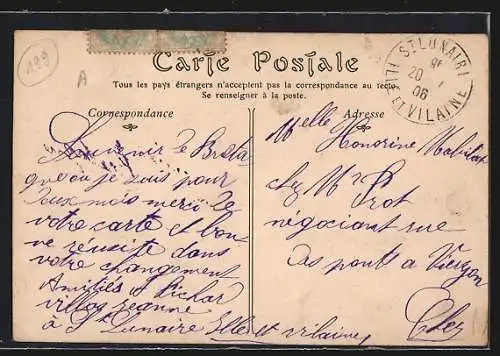 199
A
Carte Postale
Tous les pays étrangers n'acceptent pas la correspondance au recto.
Se renseigner à la poste.
Correspondance
Adresse
ST LUNAIRE
20
06
ILLE ET VILAINE
Souvenir de Breta
que où je suis pour
deux mois merci de
votre carte et bon
ne réussite dans
votre changement
Amitiés
villa Jeanne
à St Lunaire Ille et vilaine
Melle Honorine
chez Mr Prot
négociant rue
des ponts a Vierzon
Cher